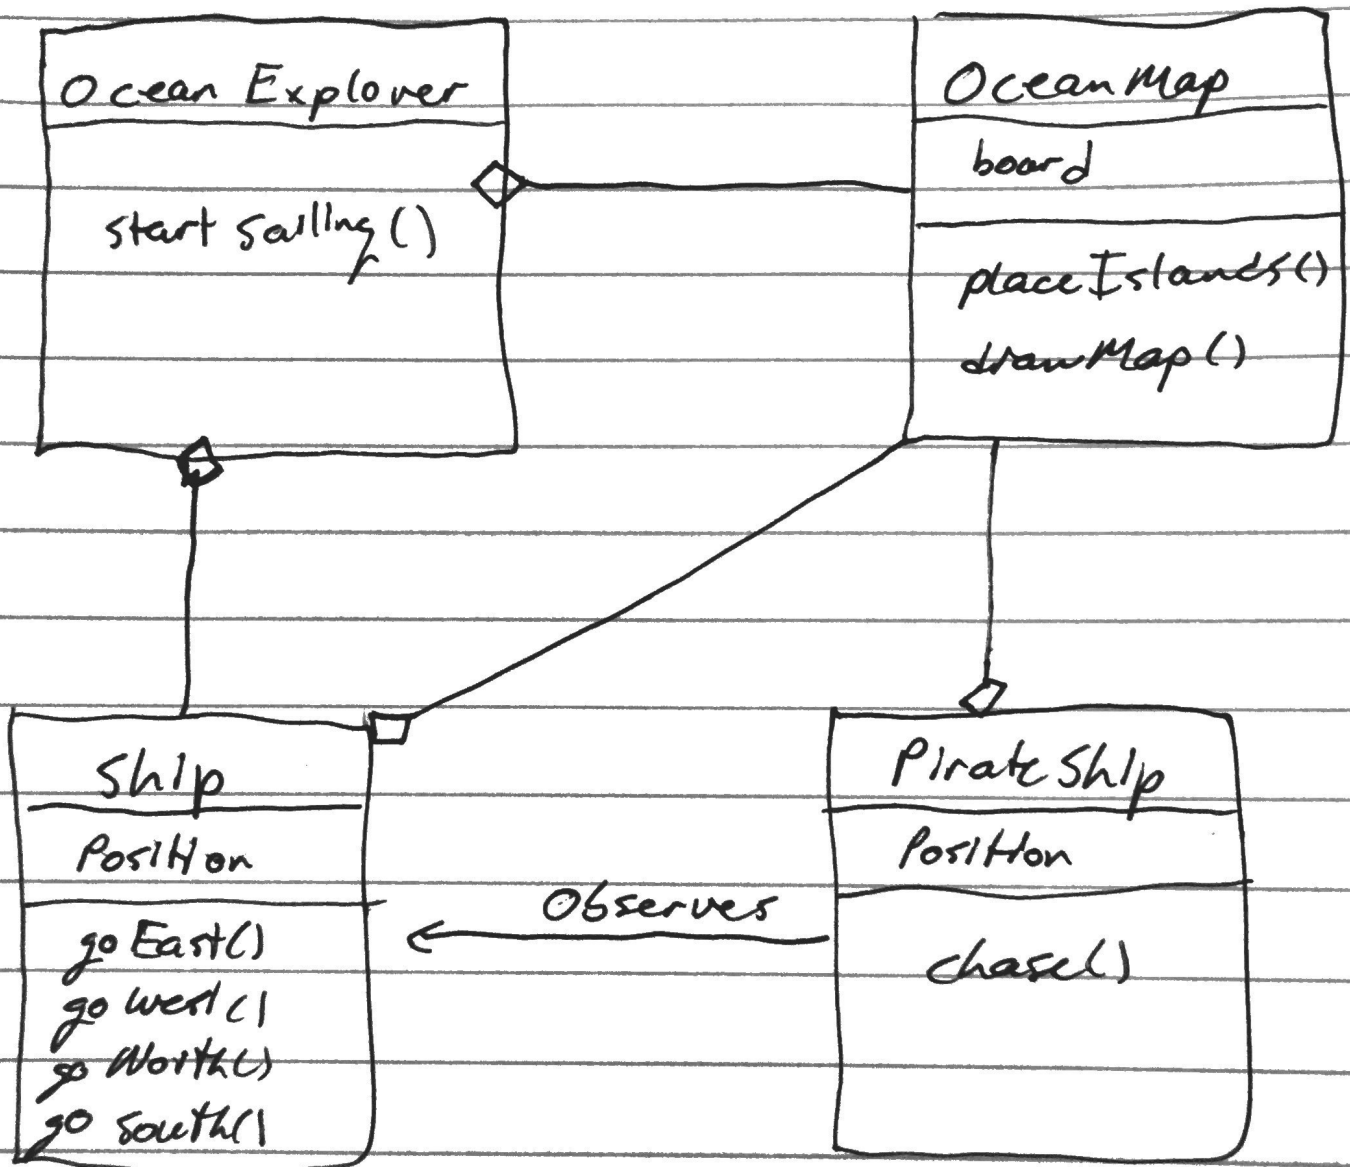 Ocean Explorer
startSailing()
OceanMap
board
placeIslands()
drawMap()
Ship
Position
goEast()
goWest()
goNorth()
goSouth()
Observes
PirateShip
Position
chase()